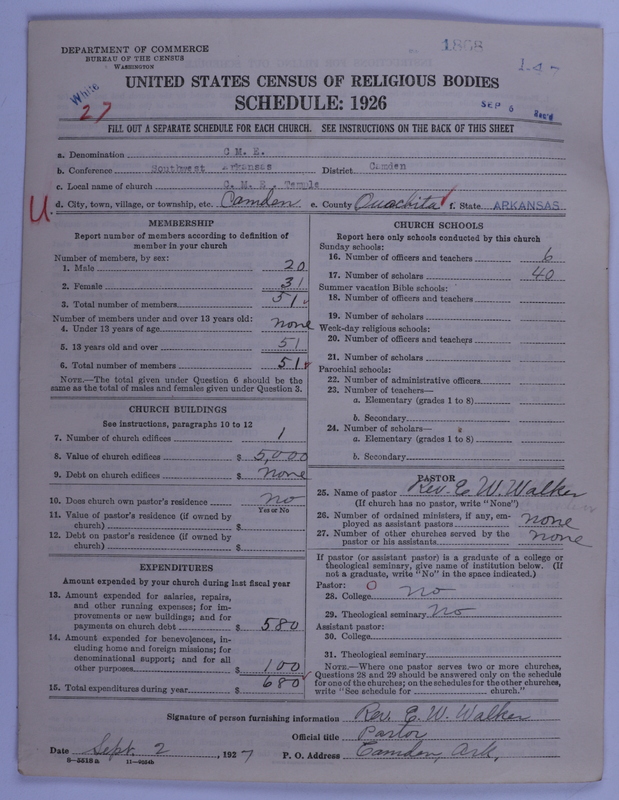 DEPARTMENT OF COMMERCE
BUREAU OF THE CENSUS
WASHINGTON
1868
White
27
UNITED STATES CENSUS OF RELIGIOUS BODIES
SCHEDULE: 1926
SEP 6 REC'D
FILL OUT A SEPARATE SCHEDULE FOR EACH CHURCH. SEE INSTRUCTIONS ON THE BACK OF THIS SHEET
a. Denomination C M E.
b. Conference Southwest Arkansas District Camden
c. Local name of church C. M. E. Temple
U. d. City, town, village, or township, etc. Camden e. County Ouachita f. State ARKANSAS
MEMBERSHIP
Report number of members according to definition of
member in your church
Number of members, by sex:
1. Male 20
2. Female 31
3. Total number of members 51
Number of members under and over 13 years old:
4. Under 13 years of age none
5. 13 years old and over 51
6. Total number of members 51
NOTE.—The total given under Question 6 should be the
same as the total of males and females given under Question 3.
CHURCH BUILDINGS
See instructions, paragraphs 10 to 12
7. Number of church edifices 1
8. Value of church edifices $ 5,000
9. Debt on church edifices $ none
10. Does church own pastor's residence no
Yes or No
11. Value of pastor's residence (if owned by
church) $
12. Debt on pastor's residence (if owned by
church) $
EXPENDITURES
Amount expended by your church during last fiscal year
13. Amount expended for salaries, repairs,
and other running expenses; for im-
provements or new buildings; and for
payments on church debt $ 580
14. Amount expended for benevolences, in-
cluding home and foreign missions; for
denominational support; and for all
other purposes $ 100
15. Total expenditures during year $ 680
CHURCH SCHOOLS
Report here only schools conducted by this church
Sunday schools:
16. Number of officers and teachers 6
17. Number of scholars 40
Summer vacation Bible schools:
18. Number of officers and teachers
19. Number of scholars
Week-day religious schools:
20. Number of officers and teachers
21. Number of scholars
Parochial schools:
22. Number of administrative officers
23. Number of teachers—
a. Elementary (grades 1 to 8)
b. Secondary
24. Number of scholars—
a. Elementary (grades 1 to 8)
b. Secondary
PASTOR
25. Name of pastor Rev. E. W. Walker
(If church has no pastor, write "None")
26. Number of ordained ministers, if any, em-
ployed as assistant pastors none
27. Number of other churches served by the
pastor or his assistants none
If pastor (or assistant pastor) is a graduate of a college or
theological seminary, give name of institution below. (If
not a graduate, write "No" in the space indicated.)
Pastor: O
28. College no
29. Theological seminary no
Assistant pastor:
30. College
31. Theological seminary
NOTE.—Where one pastor serves two or more churches,
Questions 28 and 29 should be answered only on the schedule
for one of the churches; on the schedules for the other churches,
write "See schedule for church."
Signature of person furnishing information Rev. E. W. Walker
Official title Pastor
Date Sept. 2, 1927 P. O. Address Camden, Ark,
8-5518a 11-9054b